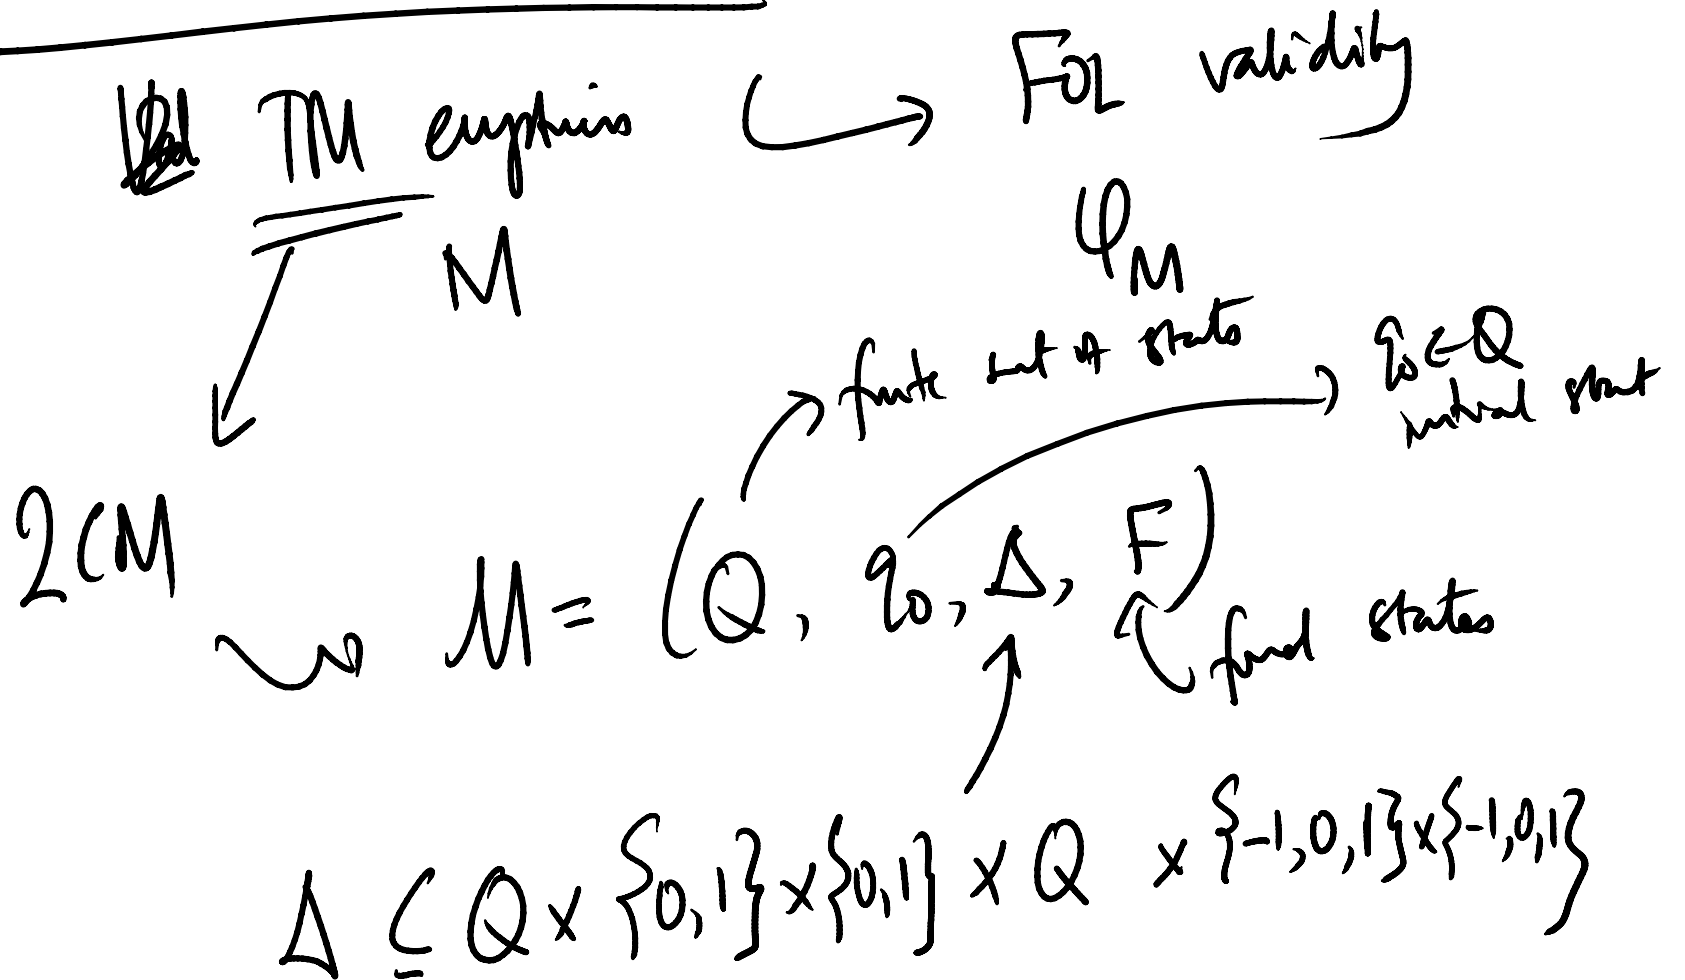 TM emptiness ↪ FOL validity
M φ_M
finite set of states
q₀ ∈ Q
initial state
2CM
M = (Q, q₀, Δ, F)
final states
Δ ⊆ Q × {0,1} × {0,1} × Q × {-1,0,1} × {-1,0,1}